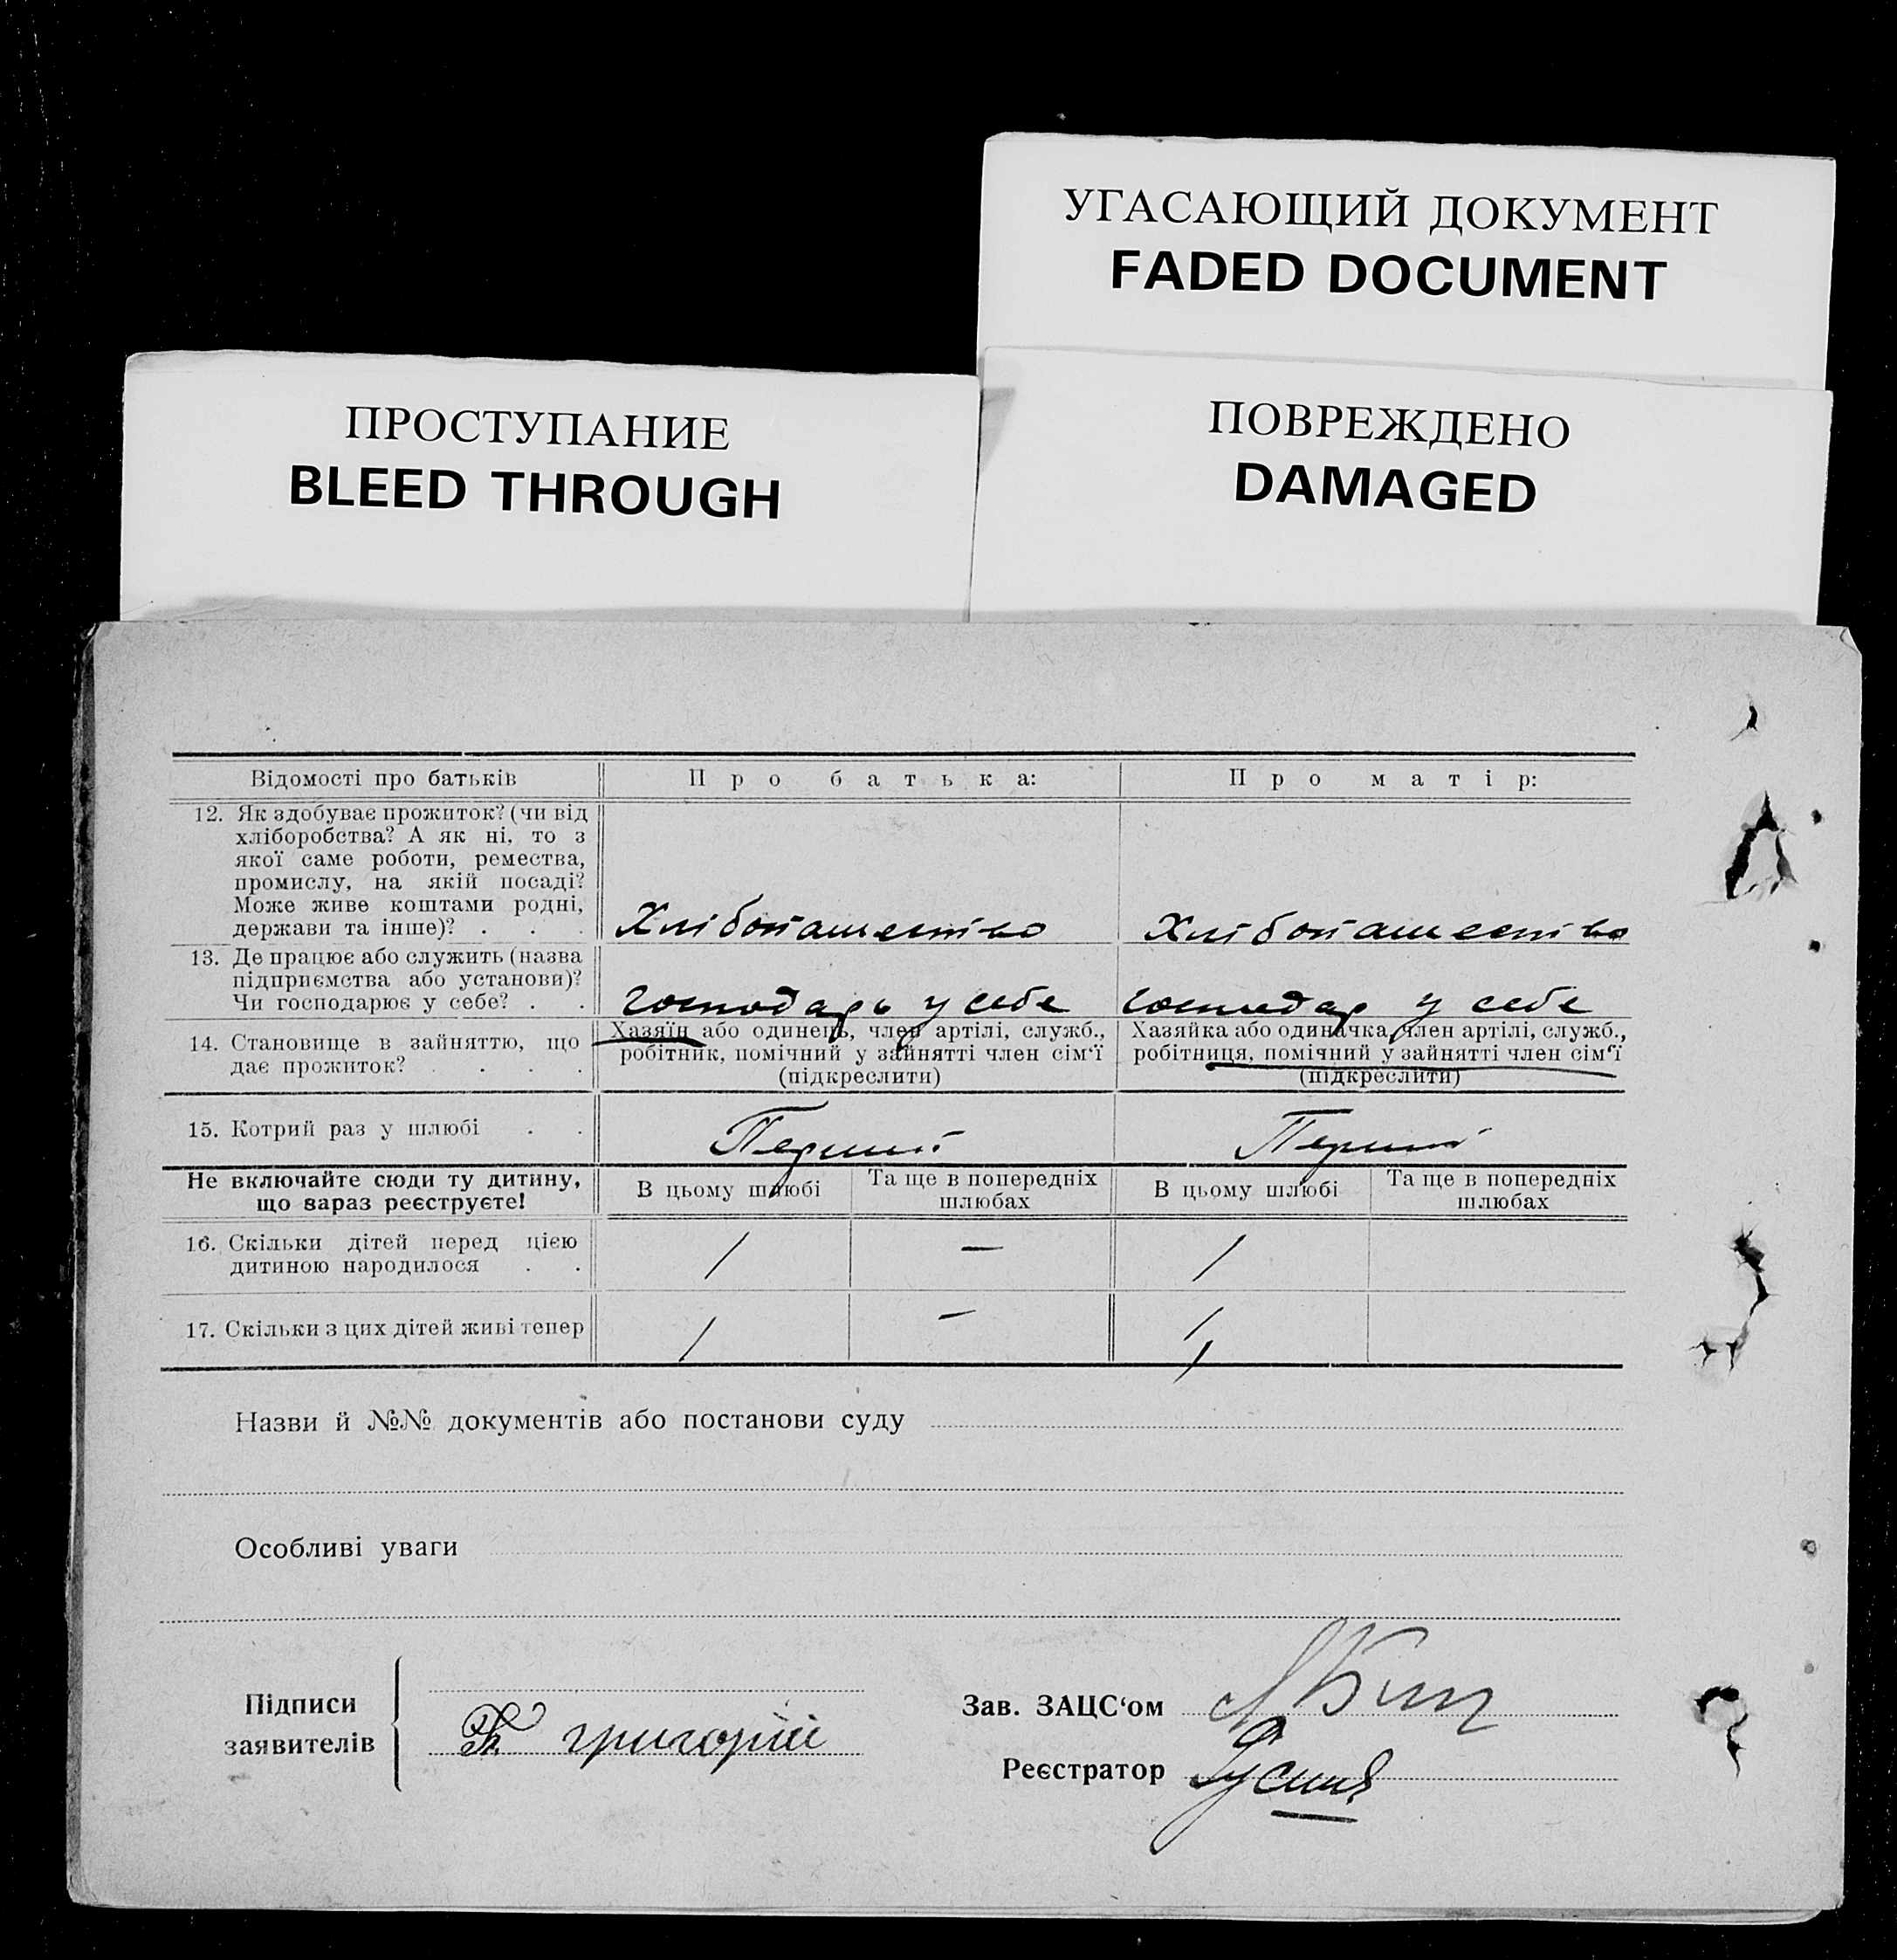 УГАСАЮЩИЙ ДОКУМЕНТ
FADED DOCUMENT
ПРОСТУПАНИЕ
BLEED THROUGH
ПОВРЕЖДЕНО
DAMAGED
Відомості про батьків
Про батька:
Про матір:
12. Як здобуває прожиток? (чи від
хліборобства? А як ні, то з
якої саме роботи, ремества,
промислу, на якій посаді?
Може живе коштами родні,
держави та інше)? . . .
Хлібопашество
Хлібопашество
13. Де працює або служить (назва
підприємства або установи)?
Чи господарює у себе? . .
Господарь у себе
Господар у себе
14. Становище в зайняттю, що
дає прожиток? . . . .
Хазяїн або одинець, член артілі, служб.,
робітник, помічний у зайнятті член сім'ї
(підкреслити)
Хазяйка або одиначка, член артілі, служб.,
робітниця, помічний у зайнятті член сім'ї
(підкреслити)
15. Котрий раз у шлюбі . .
Перший
Перший
Не включайте сюди ту дитину,
що зараз реєструєте!
В цьому шлюбі
Та ще в попередніх
шлюбах
В цьому шлюбі
Та ще в попередніх
шлюбах
16. Скільки дітей перед цією
дитиною народилося . .
1
—
1
17. Скільки з цих дітей живі тепер
1
—
1
Назви й №№ документів або постанови суду
Особливі уваги
Підписи
заявителів
григорій
Зав. ЗАЦС'ом
Реєстратор